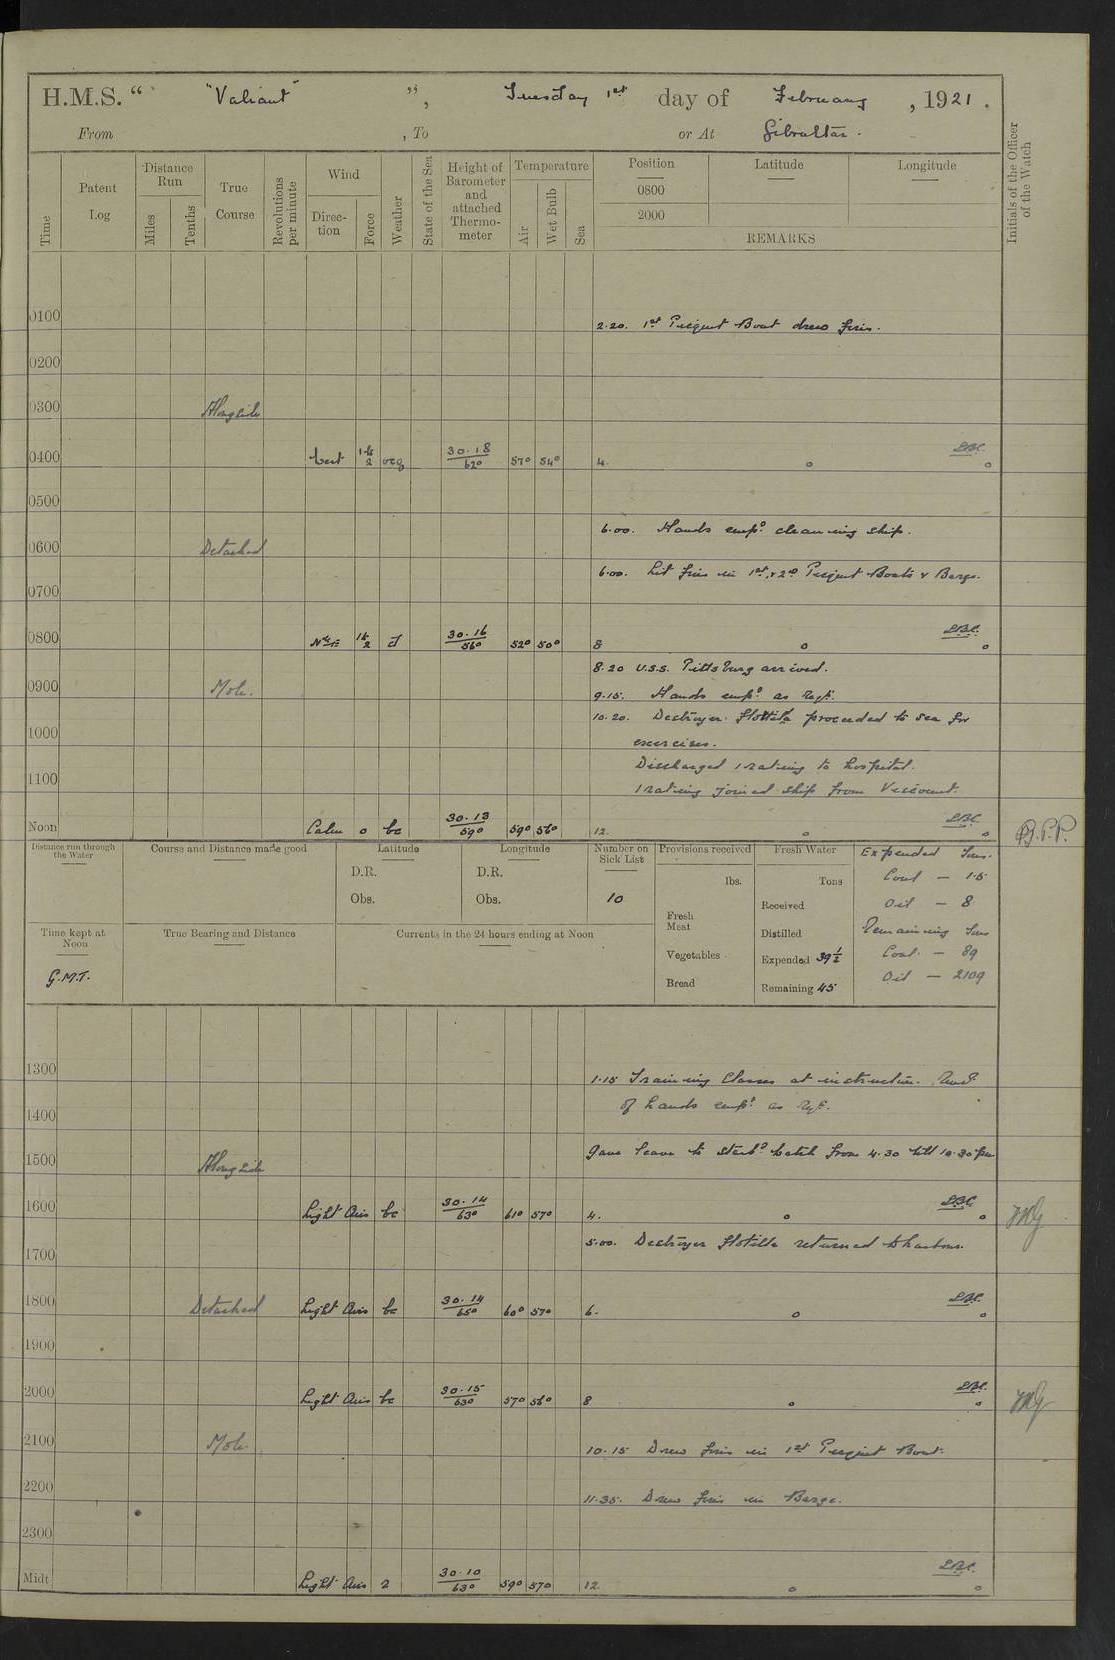 H.M.S. " "Valiant" ", Tuesday 1st day of February, 1921.
From , To or At Gibraltar.
Time
Patent Log
Distance Run
Miles
Tenths
True Course
Revolutions per minute
Wind
Direction
Force
Weather
State of the Sea
Height of Barometer and attached Thermometer
Temperature
Air
Wet Bulb
Sea
Position
0800
2000
Latitude
Longitude
REMARKS
Initials of the Officer of the Watch
0100
2.20. 1st Picquet Boat drew fires.
0200
0300 Alongside
0400 West 1 to 2 ocg 30.18 62° 57° 54° 4.
0500
6.00. Hands emp⁠d cleaning ship.
0600 Detached
6.00. Lit fires in 1st & 2nd Picquet Boats & Barge.
0700
0800 1 to 2 30.16 56° 52° 50° 8
8.20 U.S.S. Pittsburg arrived.
0900 Mole.
9.15. Hands empd as reqd.
10.20. Destroyer Flotilla proceeded to sea for
1000
exercises.
Discharged 1 rating to hospital.
1100
1 rating joined ship from Viscount.
Noon Calm 0 bc 30.13 59° 59° 56° 12.
Distance run through the Water
Course and Distance made good
Latitude
D.R.
Obs.
Longitude
D.R.
Obs.
Number on Sick List
10
Provisions received
lbs.
Fresh Meat
Vegetables
Bread
Fresh Water
Tons
Received
Distilled
Expended 39½
Remaining 45
Expended Tons.
Coal - 1.5
Oil - 8
Remaining Tons
Coal - 89
Oil - 2109
Time kept at Noon
G.M.T.
True Bearing and Distance
Currents in the 24 hours ending at Noon
1300
1.15 Training Classes at instruction. Remdr
of hands empd as reqd.
1400
Gave leave to starbd watch from 4.30 till 10.30 pm
1500 Alongside
1600 Light Airs bc 30.14 63° 61° 57° 4.
5.00. Destroyer Flotilla returned to harbour.
1700
1800 Detached Light Airs bc 30.14 65° 60° 57° 6.
1900
2000 Light Airs bc 30.15 63° 57° 56° 8
2100 Mole
10.15 Drew fires in 1st Picquet Boat.
2200
11.35. Drew fires in Barge.
2300
Midt Light Airs 2 30.10 63° 59° 57° 12.